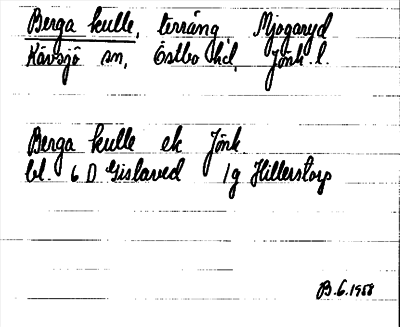 Berga kulle, terräng Mjogaryd
Kävsjö sn, Östbo hd, Jönk. l.
Berga kulle ek Jönk.
bl 6 D Gislaved 1g Hillerstorp
B.G. 1958